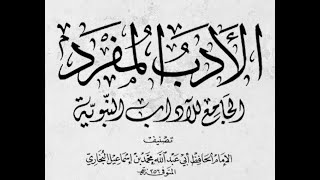 الأدب المفرد
الجامع للآداب النبوية
تصنيف
الإمام الحافظ أبي عبد الله محمد بن إسماعيل البخاري
المتوفى ٢٥٦ هـ